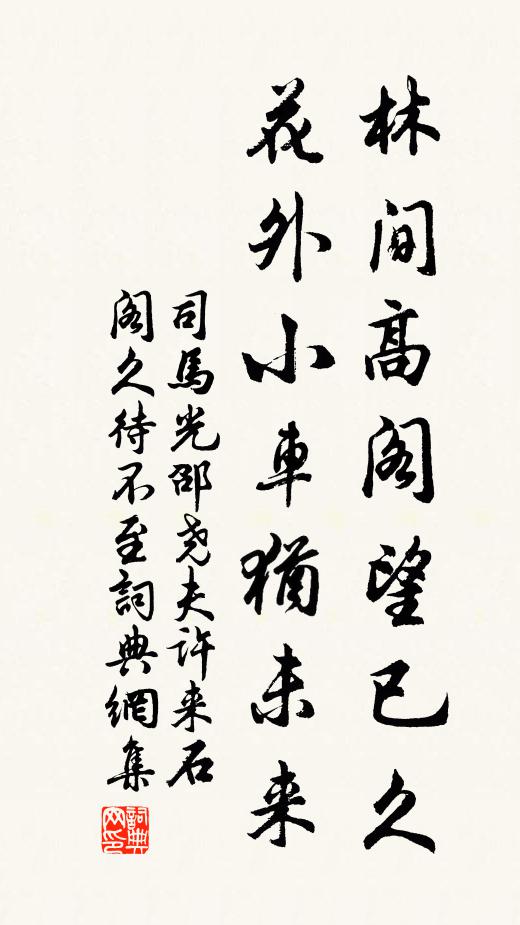 林间高阁望已久
花外小車猶未来
司馬光邵尧夫許来石
阁久待不至詞典網集
詞典网印